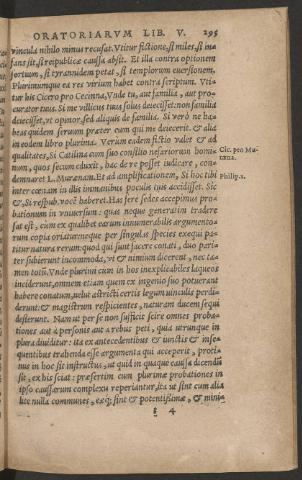 ORATORIARVM LIB. V. 295
vincula nihilo minus recusat. Vtitur fictione, si miles, si in-
fans sit, si reipublicæ caussa absit. Et illa contra optionem
fortium, si tyrannidem petat, si templorum euersionem.
Plurimumque ea res virium habet contra scriptum. Vti-
tur his Cicero pro Cecinna, Vnde tu, aut familia, aut pro-
curator tuus. Si me villicus tuus solus deiecisset: non familia
deiecisset, vt opinor, sed aliquis de familia. Si verò ne ha-
beas quidem seruum præter eum qui me deiecerit. & alia
in eodem libro plurima. Verum eadem fictio valet & ad
qualitates, Si Catilina cum suo consilio nefariorum homi-
num, quos secum eduxit, hac de re posset iudicare, con-
demnaret L. Murænam. Et ad amplificationem, Si hoc tibi
inter cœnam in illis immanibus poculis tuis accidisset. Sic
&, Si respub. vocē haberet. Has ferè sedes accepimus pro-
bationum in vniuersum: quas neque generatim tradere
sat est, cum ex qualibet earum innumerabilis argumento-
rum copia oriatur: neque per singulas species exequi pa-
titur natura rerum: quod qui sunt facere conati, duo pari-
ter subierunt incommoda, vt & nimium dicerent, nec ta-
men totū. Vnde plurimi cum in hos inexplicabiles laqueos
inciderunt, omnem etiam quem ex ingenio suo potuerant
habere conatum, velut astricti certis legum vinculis perdi-
derunt: & magistrum respicientes, naturam ducem sequi
desierunt. Nam ut per se non sufficit scire omnes proba-
tiones aut à personis aut à rebus peti, quia utrunque in
plura diuiditur: ita ex antecedentibus & iunctis & inse-
quentibus trahenda esse argumenta qui acceperit, proti-
nus in hoc sit instructus, ut quid in quaque caussa dicendū
sit, ex his sciat: præsertim cum plurimæ probationes in
ipso caussarum complexu reperiantur, ita ut sint cum alia
lite nulla communes, eæq; sint & potentissimæ, & minus
4
Cic. pro Mu-
ræna.
Philip. 2.